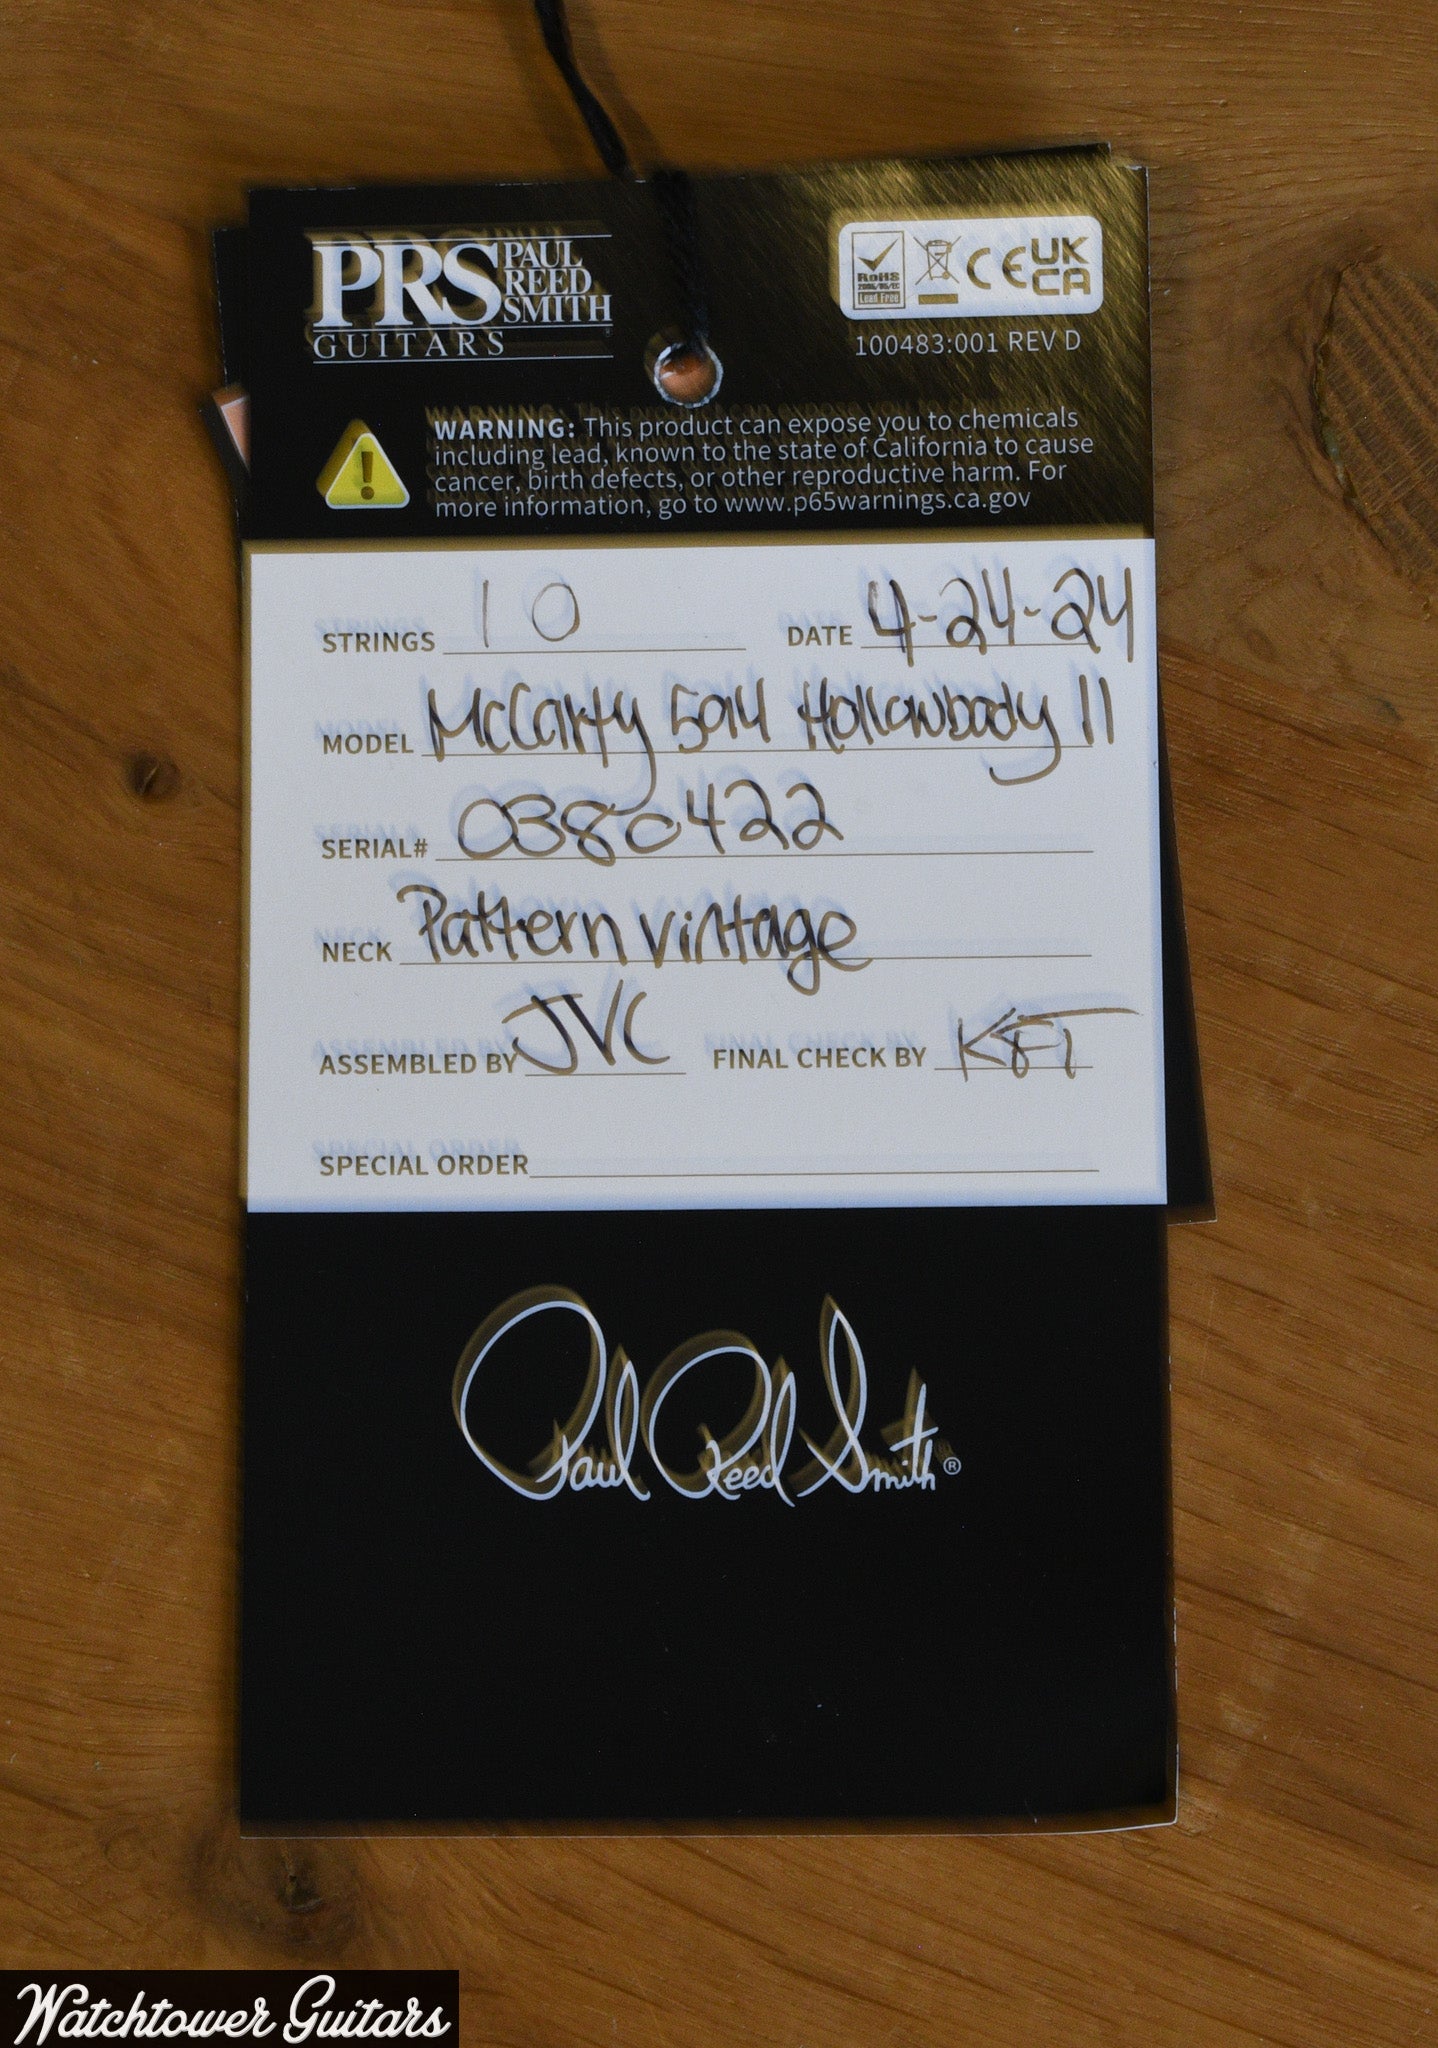 PRS PAUL REED SMITH
GUITARS
RoHS
2006/95/EC
Lead Free
CE UK CA
100483:001 REV D
WARNING: This product can expose you to chemicals
including lead, known to the state of California to cause
cancer, birth defects, or other reproductive harm. For
more information, go to www.p65warnings.ca.gov
STRINGS 10 DATE 4-24-24
MODEL McCarty 594 Hollowbody II
SERIAL# 0380422
NECK Pattern vintage
ASSEMBLED BY JVC FINAL CHECK BY
SPECIAL ORDER
Paul Reed Smith ®
Watchtower Guitars